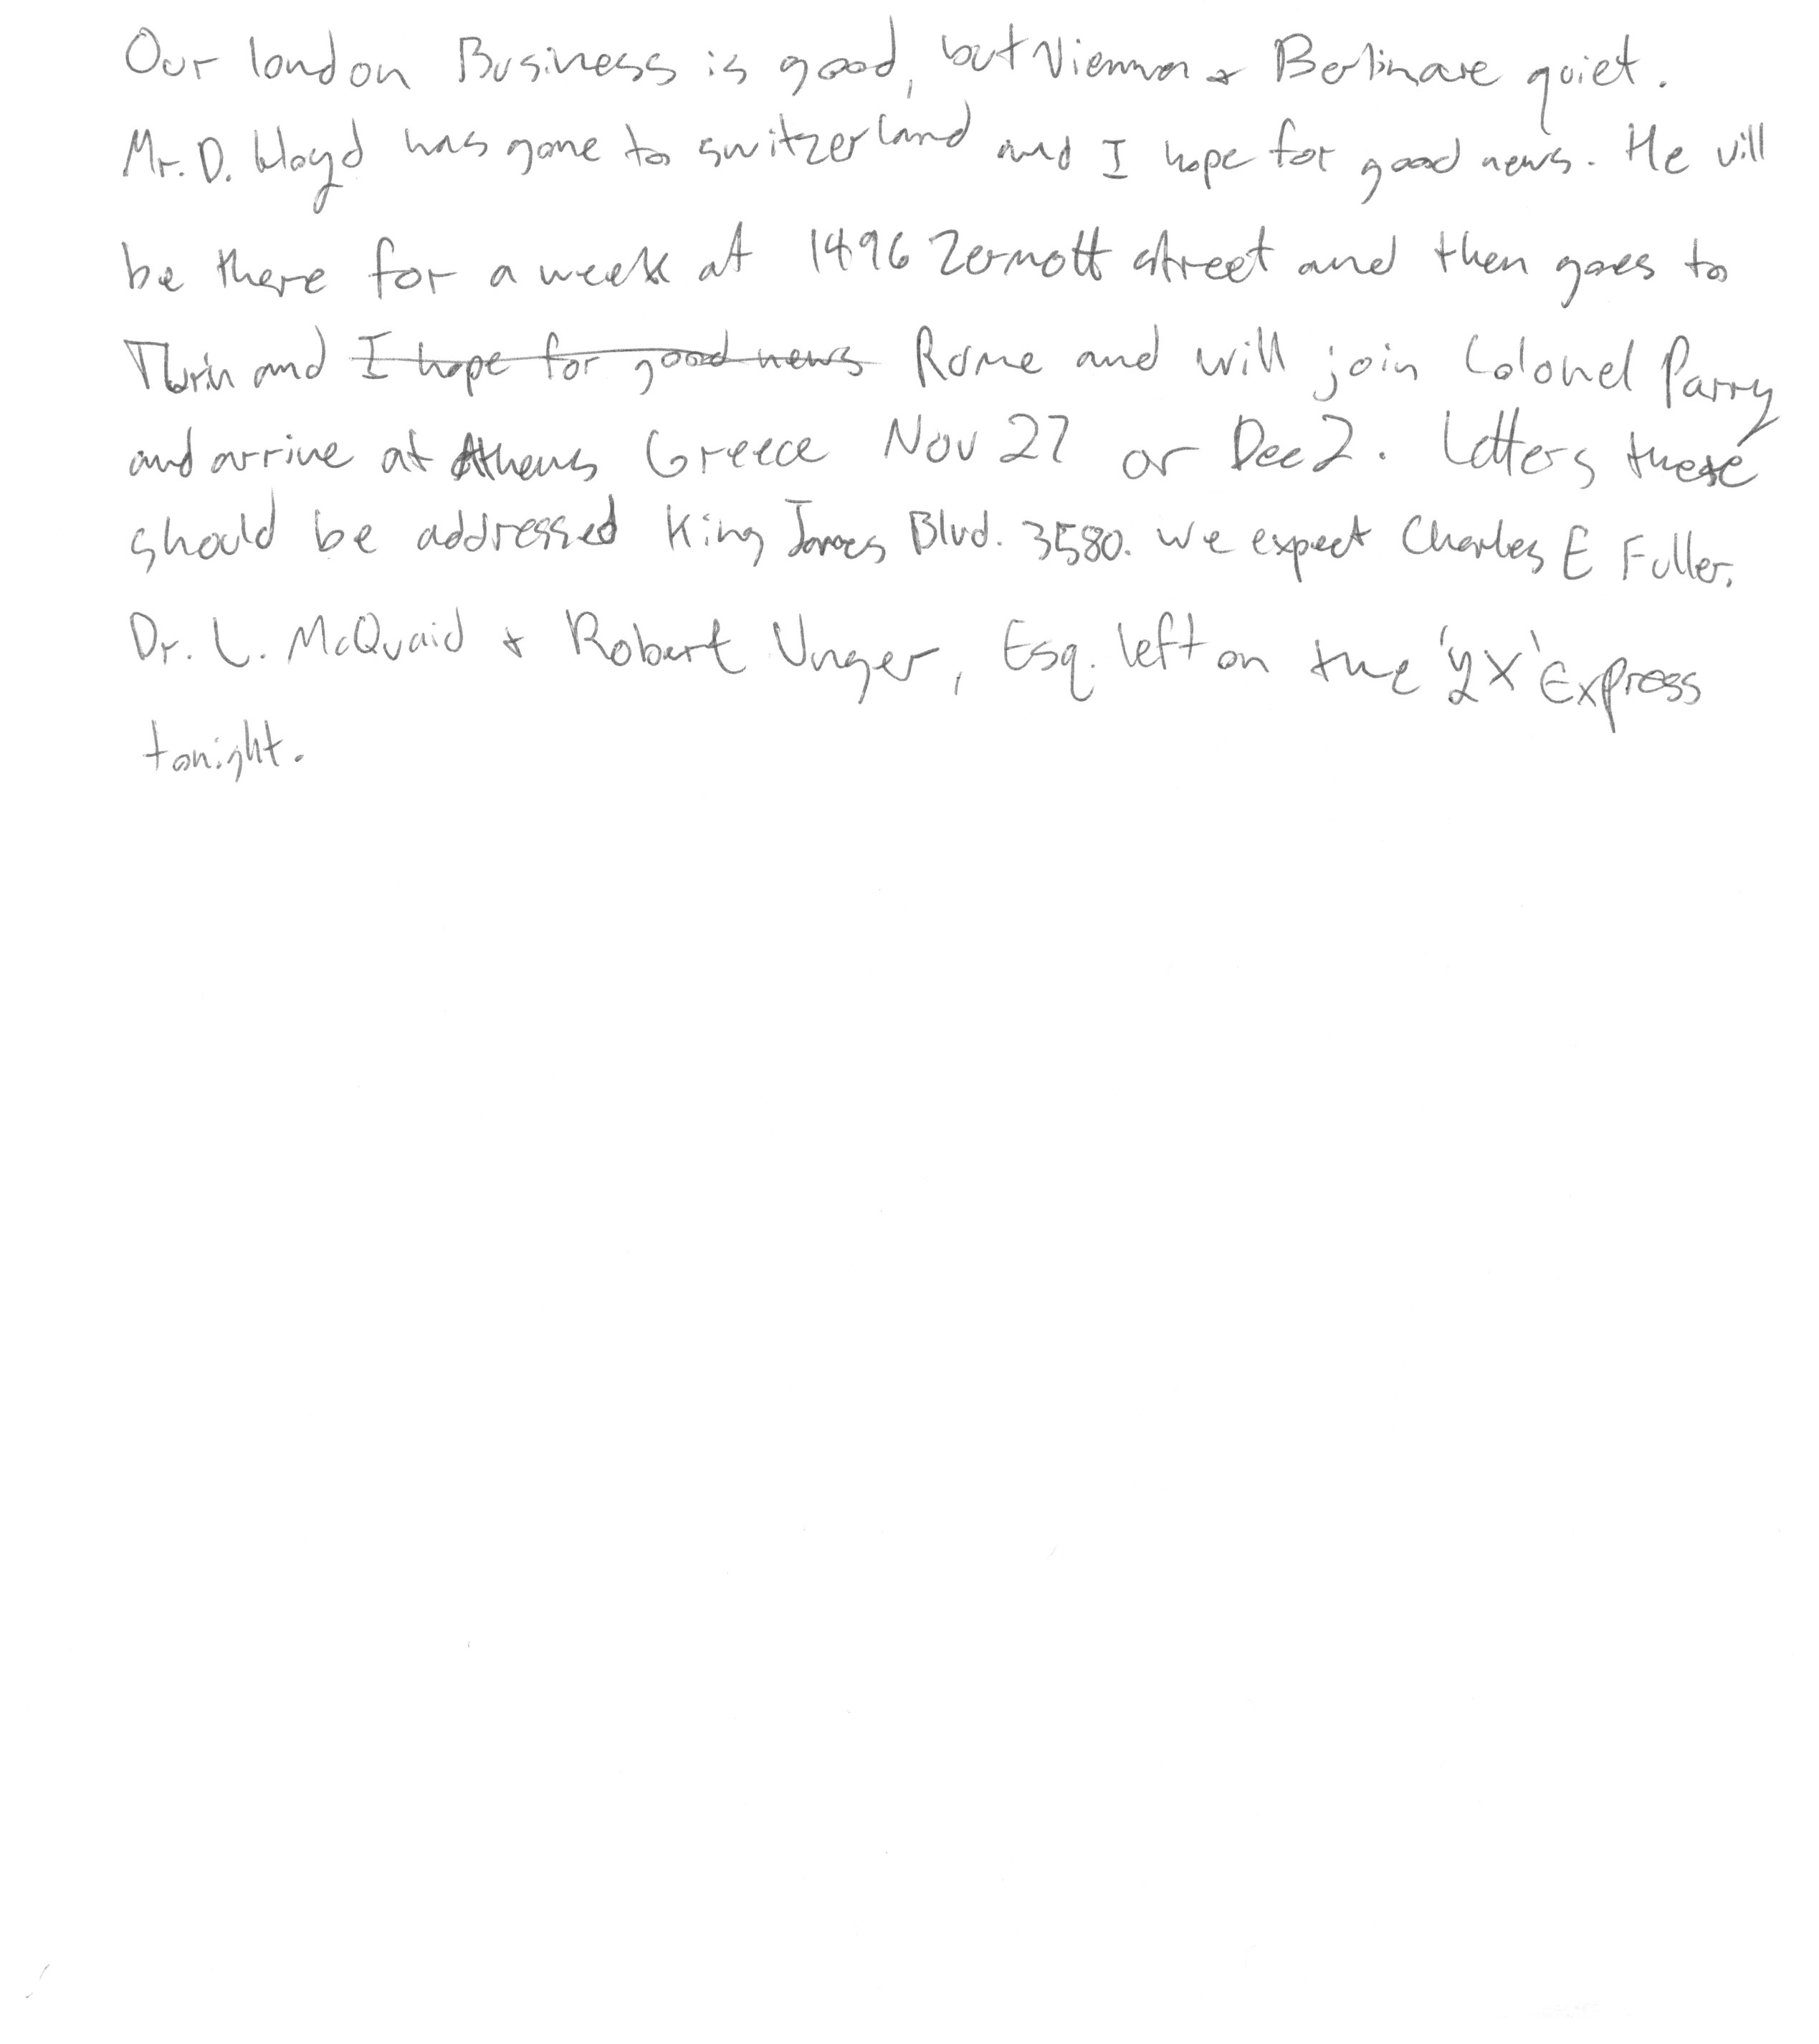 Our london Business is good, but Vienna & Berlin are quiet.
Mr. D. Lloyd has gone to switzerland and I hope for good news. He will
be there for a week at 1496 Zermott street and then goes to
Turin and I hope for good news Rome and will join Colonel Parry
and arrive at Athens Greece Nov 27 or Dec 2. Letters these
should be addressed King James Blvd. 3580. we expect Charles E Fuller.
Dr. L. McQuaid & Robert Unger, Esq. left on the 'YX' Express
tonight.